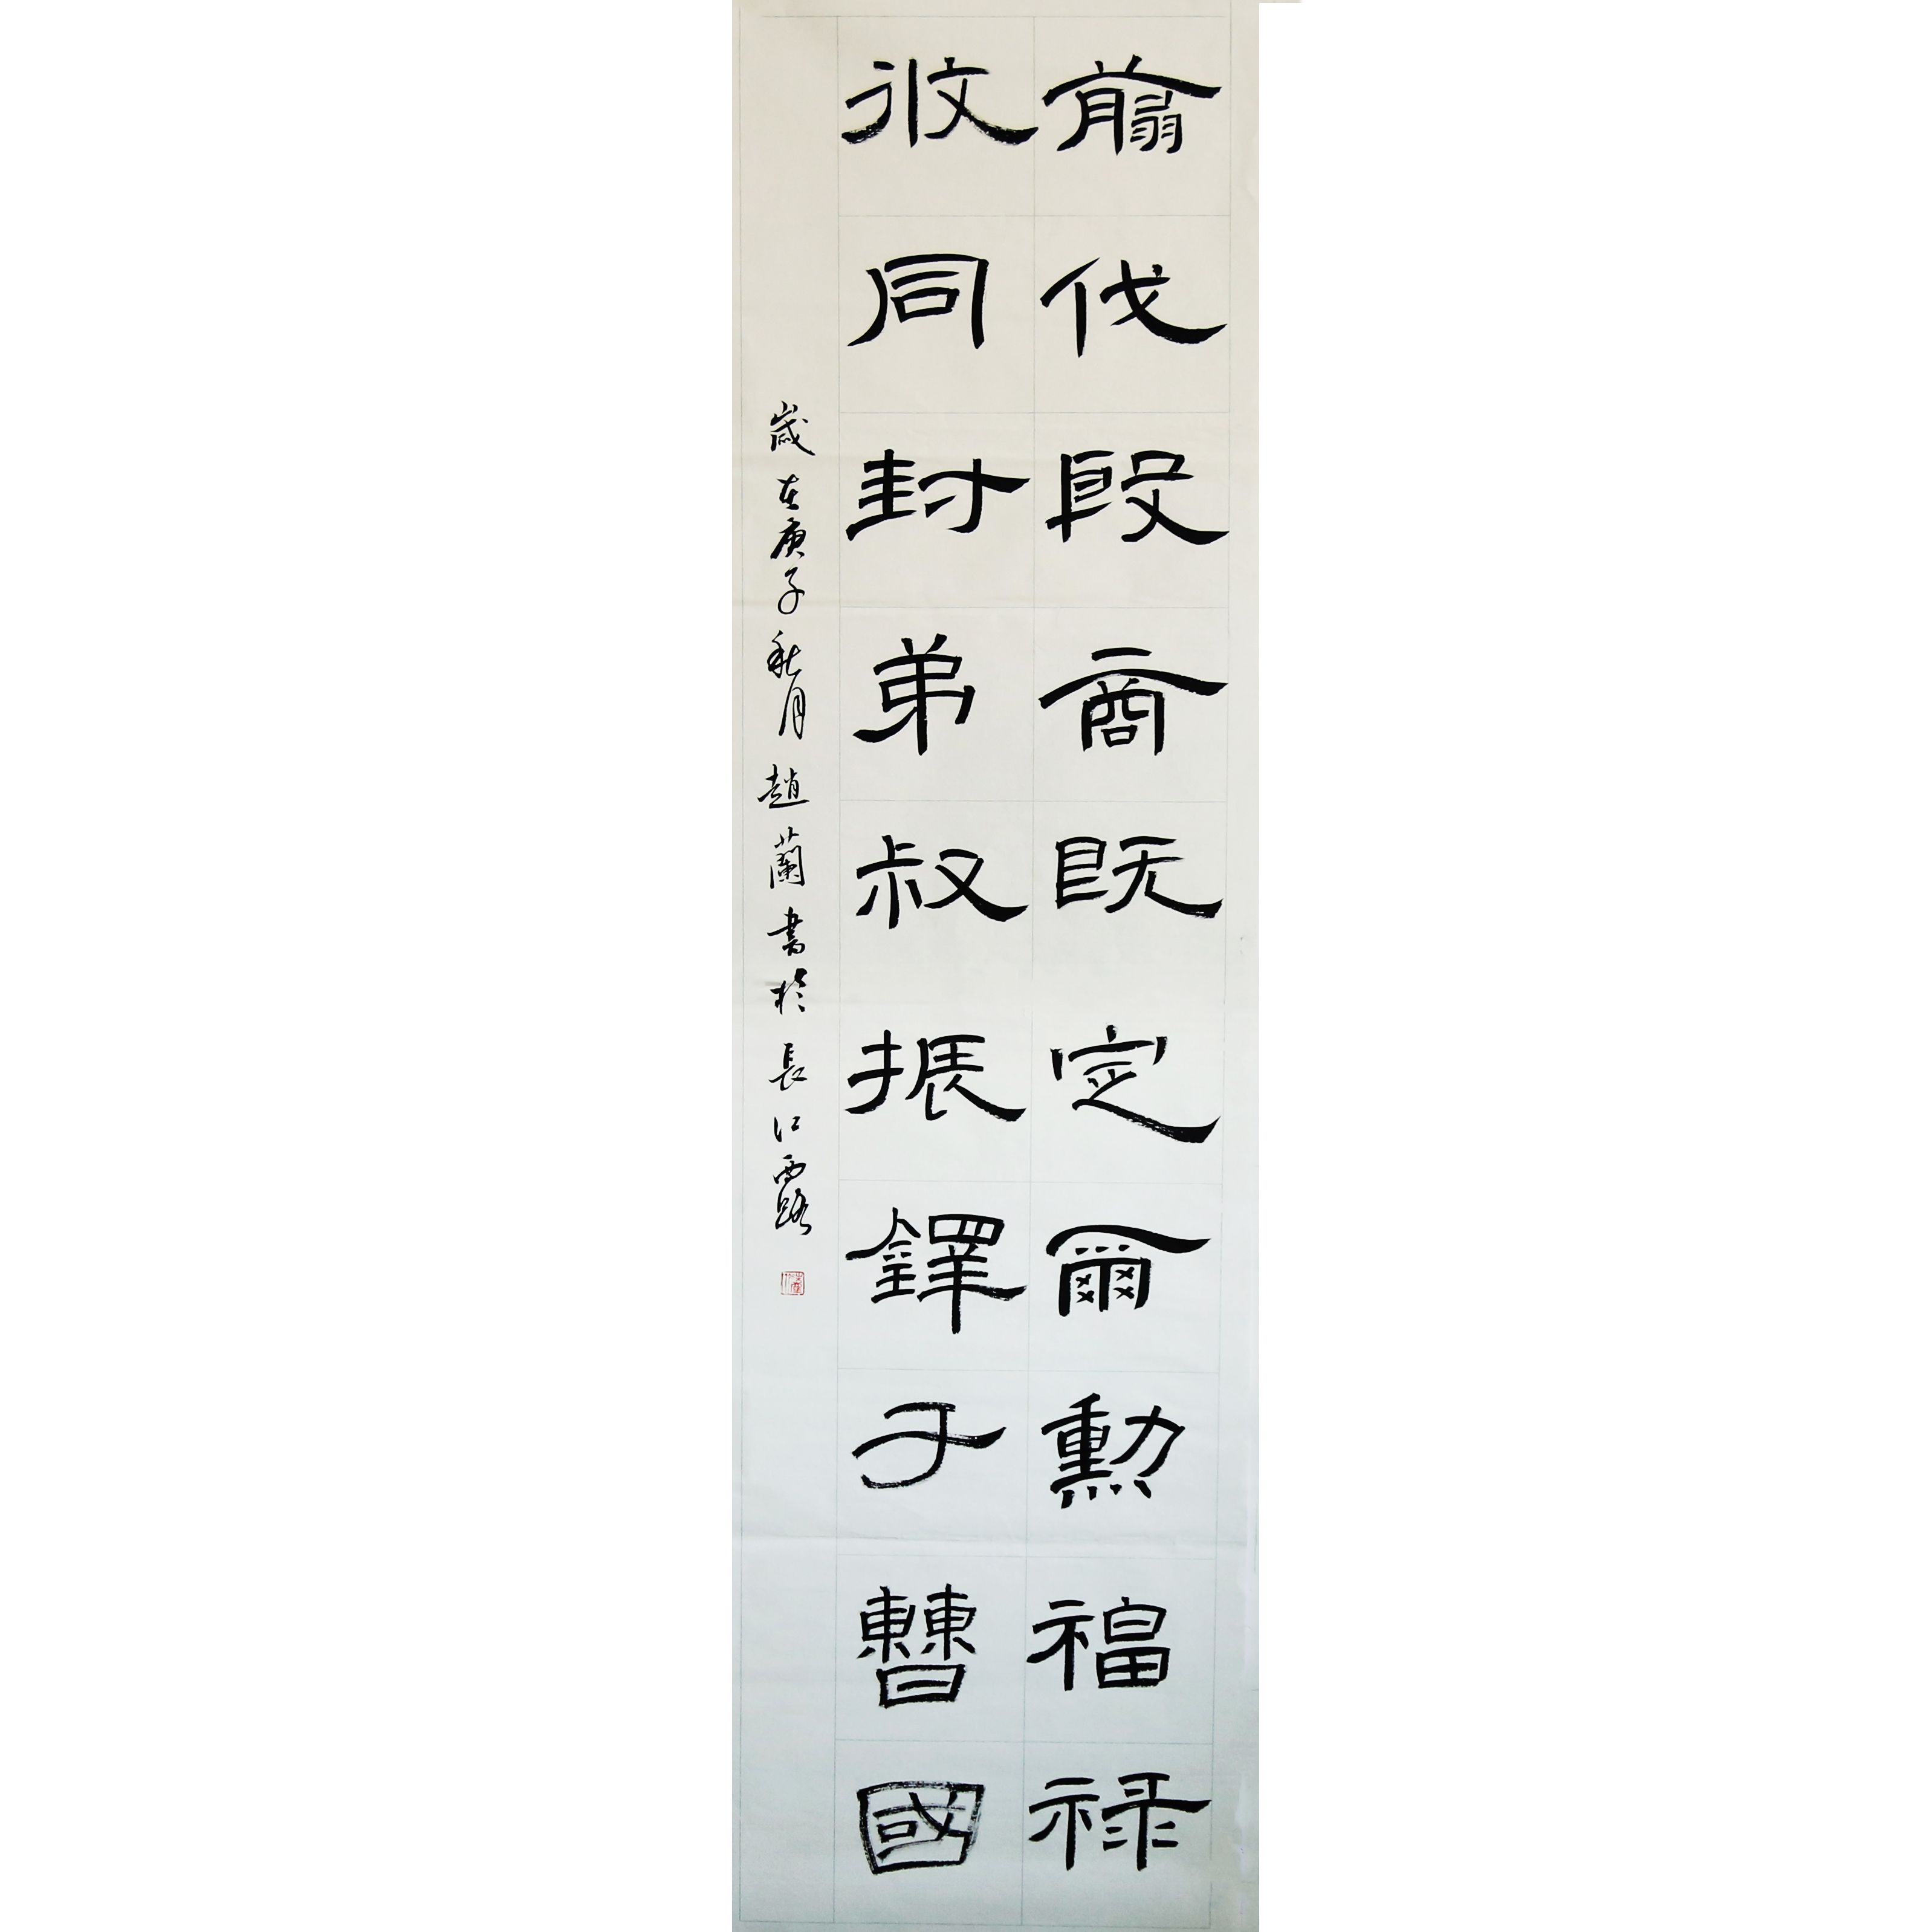 翦伐殷商既定爾勲福祿
攸同封弟叔振鐸于曹國
歲在庚子秋月趙蘭書於長江西路